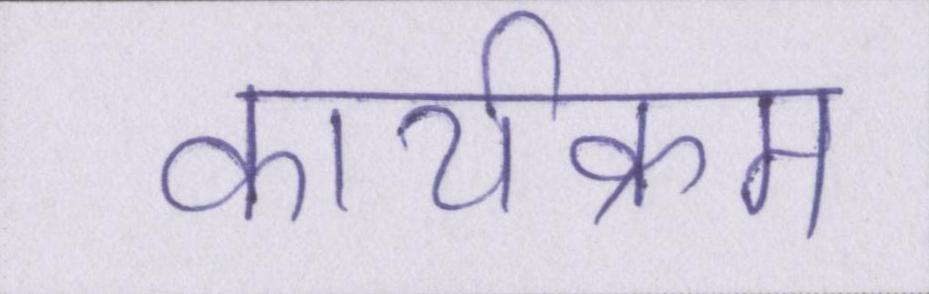 कार्यक्रम